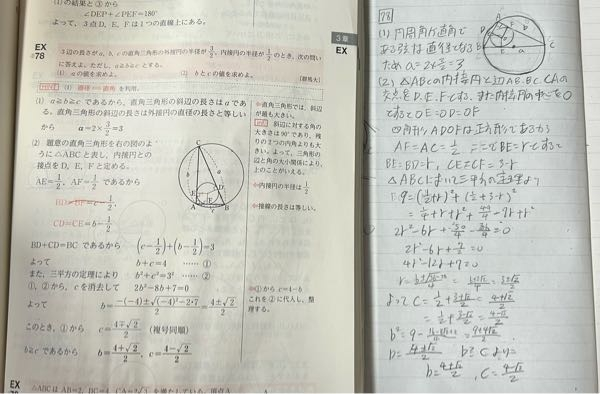 (1)の結果と③から
∠DEP+∠PEF=180°
よって，3点D，E，Fは1つの直線上にある。
3章
EX
EX
78
3辺の長さがa，b，cの直角三角形の外接円の半径が3/2，内接円の半径が1/2のとき，次の問いに答えよ。ただし，a≧b≧cとする。
(1) aの値を求めよ。 (2) bとcの値を求めよ。 [群馬大]
(1) 直径⇔直角 を利用。
(1) a≧b≧cであるから，直角三角形の斜辺の長さはaである。
直角三角形の斜辺の長さは外接円の直径の長さと等しいから
a=2×3/2=3
(2) 題意の直角三角形を右の図のように△ABCと表し，内接円との接点をD，E，Fと定める。
AE=1/2，AF=1/2であるから
BD=BF=c-1/2，
CD=CE=b-1/2
C
D
E
A
F
B
BD+CD=BCであるから (c-1/2)+(b-1/2)=3
よって b+c=4 ……①
また，三平方の定理により b²+c²=3² ……②
①，②から，cを消去して 2b²-8b+7=0
よって b=-(-4)±√((-4)²-2・7)/2=4±√2/2
このとき，①から c=4∓√2/2 (複号同順)
b≧cであるから b=4+√2/2，c=4-√2/2
⇔直角三角形では，斜辺が最も大きい。
斜辺に対する角の大きさは90°であり，残りの2つの内角よりも大きい。よって，三角形の辺と角の大小関係により，上のことがいえる。
⇔内接円の半径は1/2
⇔接線の長さは等しい。
⇔①からc=4-b
これを②に代入し，整理する。
EX
△ABCはAB=2，BC=4，CA=2√3
78
(1) 円周角が直角である弦は直径であるため a=2×3/2=3
(2) △ABCの内接円と辺AB・BC・CAの交点をD・E・Fとする。また内接円の中心をOとしてOE=OD=OF
四角形ADOFは正方形であるから
AF=AC=1/2 ここでBE=rとして
BE=BD=r，CE=CF=3-r
△ABCにおいて三平方の定理より
9=(1/2+r)²+(1/2+3-r)²
2r²-6r+7/2=0
4r²-12r+7=0
よって C=1/2+3±√2/2=4±√2/2
b≧Cより
b=4+√2/2，C=4-√2/2